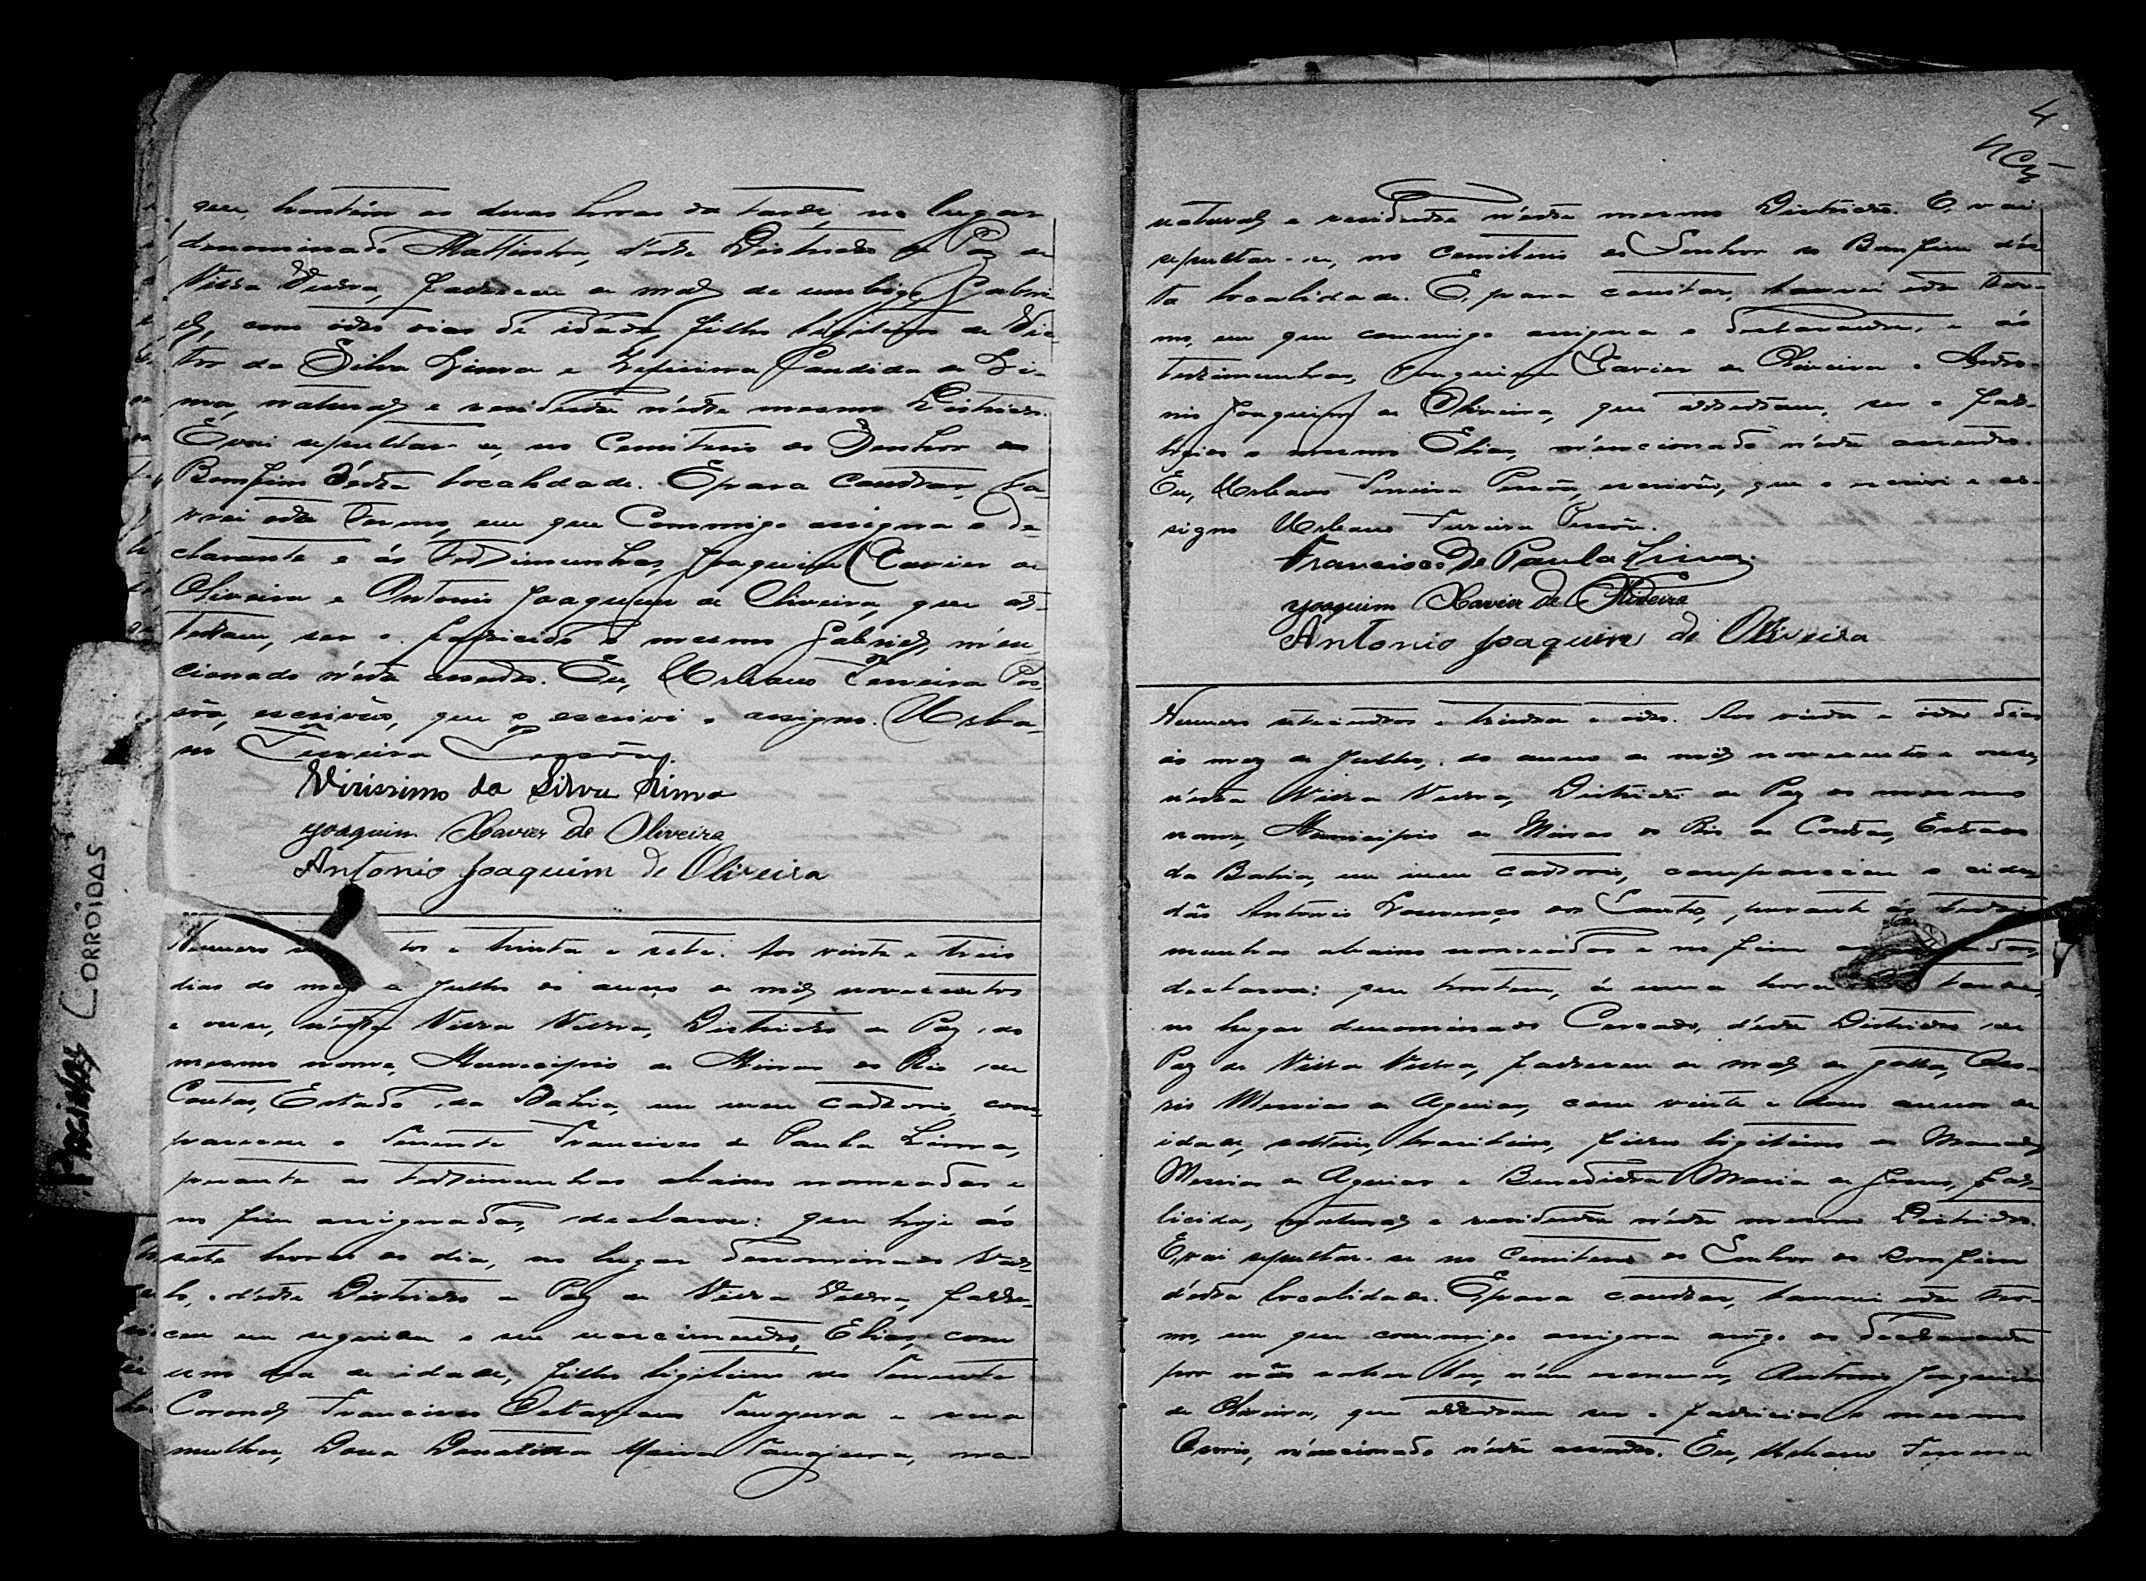 que, hontem as duas horas da tarde, no lugar
denominado Mattinha, d'este Districto de Paz de
Villa Velha, falleceu de mal de umbigo, Gabri-
el, com oito dias de idade, filho legitimo de Vic-
tor da Silva Lima e Zeferina Candida de Li-
ma, natural e residente n'este mesmo Districto.
E vai sepultar-se, no Cemiterio do Senhor do
Bomfim d'esta localidade. E para constar, la-
vrei este Termo, em que commigo assigna o de-
clarante e ás testimunhas, Joaquim Xavier de
Oliveira e Antonio Joaquim de Oliveira, que at-
testam, ser o fallecido o mesmo Gabriel, men-
cionado n'este assento. Eu, Urbano Ferreira Pes-
sôa, escrivão, que o escrivi e assigno. Urba-
no Ferreira Pessôa.
Virissimo da Silva Lima
Joaquim Xavier de Oliveira
Antonio Joaquim de Oliveira
Numero tos e trinta e sete. Aos vinte e treis
dias do mez de Julho do anno de mil novecentos
e onze, n'esta Villa Velha, Districto de Paz do
mesmo nome, Municipio de Minas do Rio de
Contas, Estado da Bahia, em meu cartorio, com-
pareceu o Tenente Francisco de Paula Lima,
perante as testimunhas abaixo nomeadas e
no fim assignadas, declarou: que hoje ás
sete horas do dia, no lugar denominado Val-
lo, d'este Districto de Paz de Villa Velha, falle-
ceu em seguida o seu nascimento, Elias, com
um dia de idade, filho legitimo do Tenente
Coronel Francisco Tanajura e sua
mulher, Dona Donatilla Meira Tanajura, na-
4
natural e residente n'este mesmo Districto. E, vai
sepultar-se, no cemiterio do Senhor do Bomfim d'es-
ta localidade. E, para constar, lavrei este ter-
mo, em que commigo assigna o declarante, e ás
testimunhas, Joaquim Xavier de Oliveira e Anto-
nio Joaquim de Oliveira, que attestam, ser o fal-
lecido o mesmo Elias, mencionado n'este assento.
Eu, Urbano Ferreira Pessôa, escrivão, que o escrivi e as-
signo Urbano Ferreira Pessôa.
Francisco de Paula Lima
Joaquim Xavier de Oliveira
Antonio Joaquim de Oliveira
Numero setecentos e trinta e oito. Aos vinte e oito dias
do mez de Julho, do anno de mil novecentos e onze,
n'esta Villa Velha, Districto de Paz do mesmo
nome, Municipio de Minas do Rio de Contas, Estado
da Bahia, em meu cartorio, compareceu o cida-
dão Antonio Lourenço dos Santos, perante ás testi-
munhas abaixo nomeadas e no fim
declarou: que hontem, á uma hora tarde,
no lugar denominado Cercado, d'este Districto de
Paz de Villa Velha, falleceu de mal de gotta,
Messias de Aguiar, com vinte e dous annos de
idade, solteiro, brasileiro, filho legitimo de Manoel
Messias de Aguiar e Benedicta Maria de Jesus, fal-
licida, natural e residente n'este mesmo Districto.
E, vai sepultar-se no Cemiterio do Senhor do Bomfim
d'esta localidade. E, para constar, lavrei este ter-
mo, em que commigo assigna arôgo do declarante
por não saber ler, nem escrever, Antonio Joaquim
de Oliveira, que attestam ser o fallecido o mesmo
mencionado n'este assento. Eu, Urbano Ferreira
PAGINAS CORROIDAS